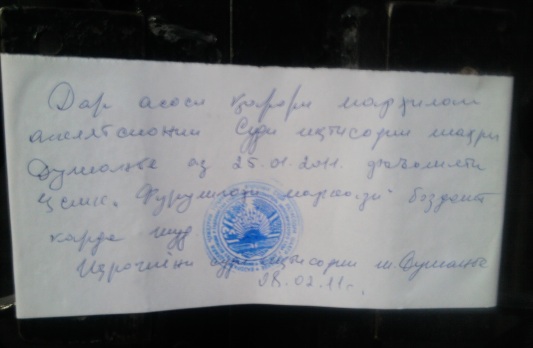 Дар асоси қарори марҳилаи
апелятсионии Суди иқтисодии шаҳри
Душанбе аз 25.01.2011 фаъолияти
ҶСМК. "Фурушгоҳи марказӣ" боздошт
карда шуд
Иҷрочиёни суди иқтисодии ш. Душанбе
28.02.11г.